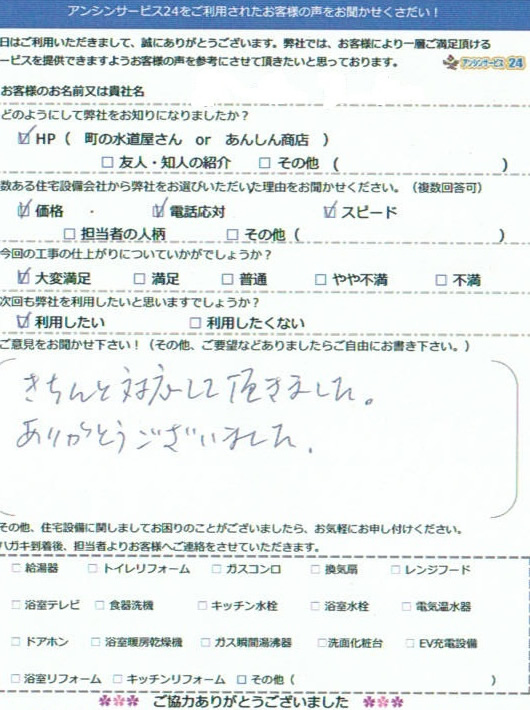 アンシンサービス24をご利用されたお客様の声をお聞かせください！
日はご利用いただきまして、誠にありがとうございます。弊社では、お客様により一層ご満足頂ける
ービスを提供できますようお客様の声を参考にさせて頂きたいと思っております。 アンシンサービス24
お客様のお名前又は貴社名
どのようにして弊社をお知りになりましたか？
☑HP（ 町の水道屋さん or あんしん商店 ）
□友人・知人の紹介 □その他 （ ）
数ある住宅設備会社から弊社をお選びいただいた理由をお聞かせください。（複数回答可）
☑価格 ・ ☑電話応対 ☑スピード
□担当者の人柄 □その他（ ）
今回の工事の仕上がりについていかがでしょうか？
☑大変満足 □満足 □普通 □やや不満 □不満
次回も弊社を利用したいと思いますでしょうか？
☑利用したい □利用したくない
ご意見をお聞かせ下さい！（その他、ご要望などありましたらご自由にお書き下さい。）
きちんと対応して頂きました。
ありがとうございました.
その他、住宅設備に関しましてお困りのことがございましたら、お気軽にお申し付けください。
ハガキ到着後、担当者よりお客様へご連絡をさせていただきます。
□給湯器 □トイレリフォーム □ガスコンロ □換気扇 □レンジフード
□浴室テレビ □食器洗機 □キッチン水栓 □浴室水栓 □電気温水器
□ドアホン □浴室暖房乾燥機 □ガス瞬間湯沸器 □洗面化粧台 □EV充電設備
□浴室リフォーム □キッチンリフォーム □その他（ ）
ご協力ありがとうございました